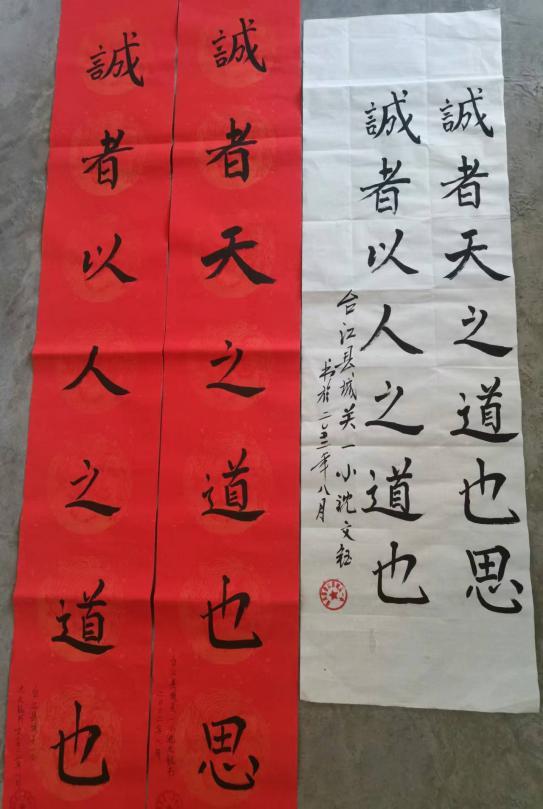 誠者天之道也思
誠者以人之道也
台江县城关一小沈文钰
书於二〇二二年八月
誠者天之道也思
誠者以人之道也